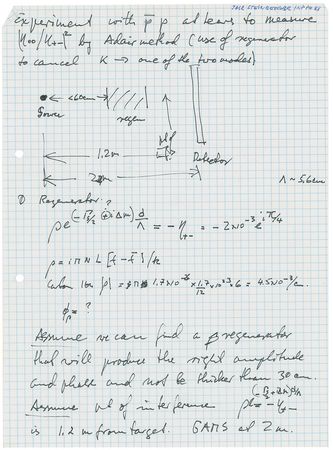 Experiment with p̄ p at Lear to measure
|η00/η+-|² by Adair method (use of regenerator
to cancel K → one of the two modes)
<60cm
Source
regen
pt of
1.2 m
2m
Detector
Λ ~ 5.6cm
① Regenerator?
ρe^(-Γs/2 + iΔm) d/Λ = -η+- = -2×10^-3 e^iπ/4
ρ = iπNΛ [f - f̄]/k
Carbon |ρ| = 4.5×10^-3/cm.
φρ = ?
Assume we can find a regenerator
that will produce the right amplitude
and phase and not be thicker than 30 cm.
Assume pt of interference
is 1.2 m from target. GAMS at 2 m.